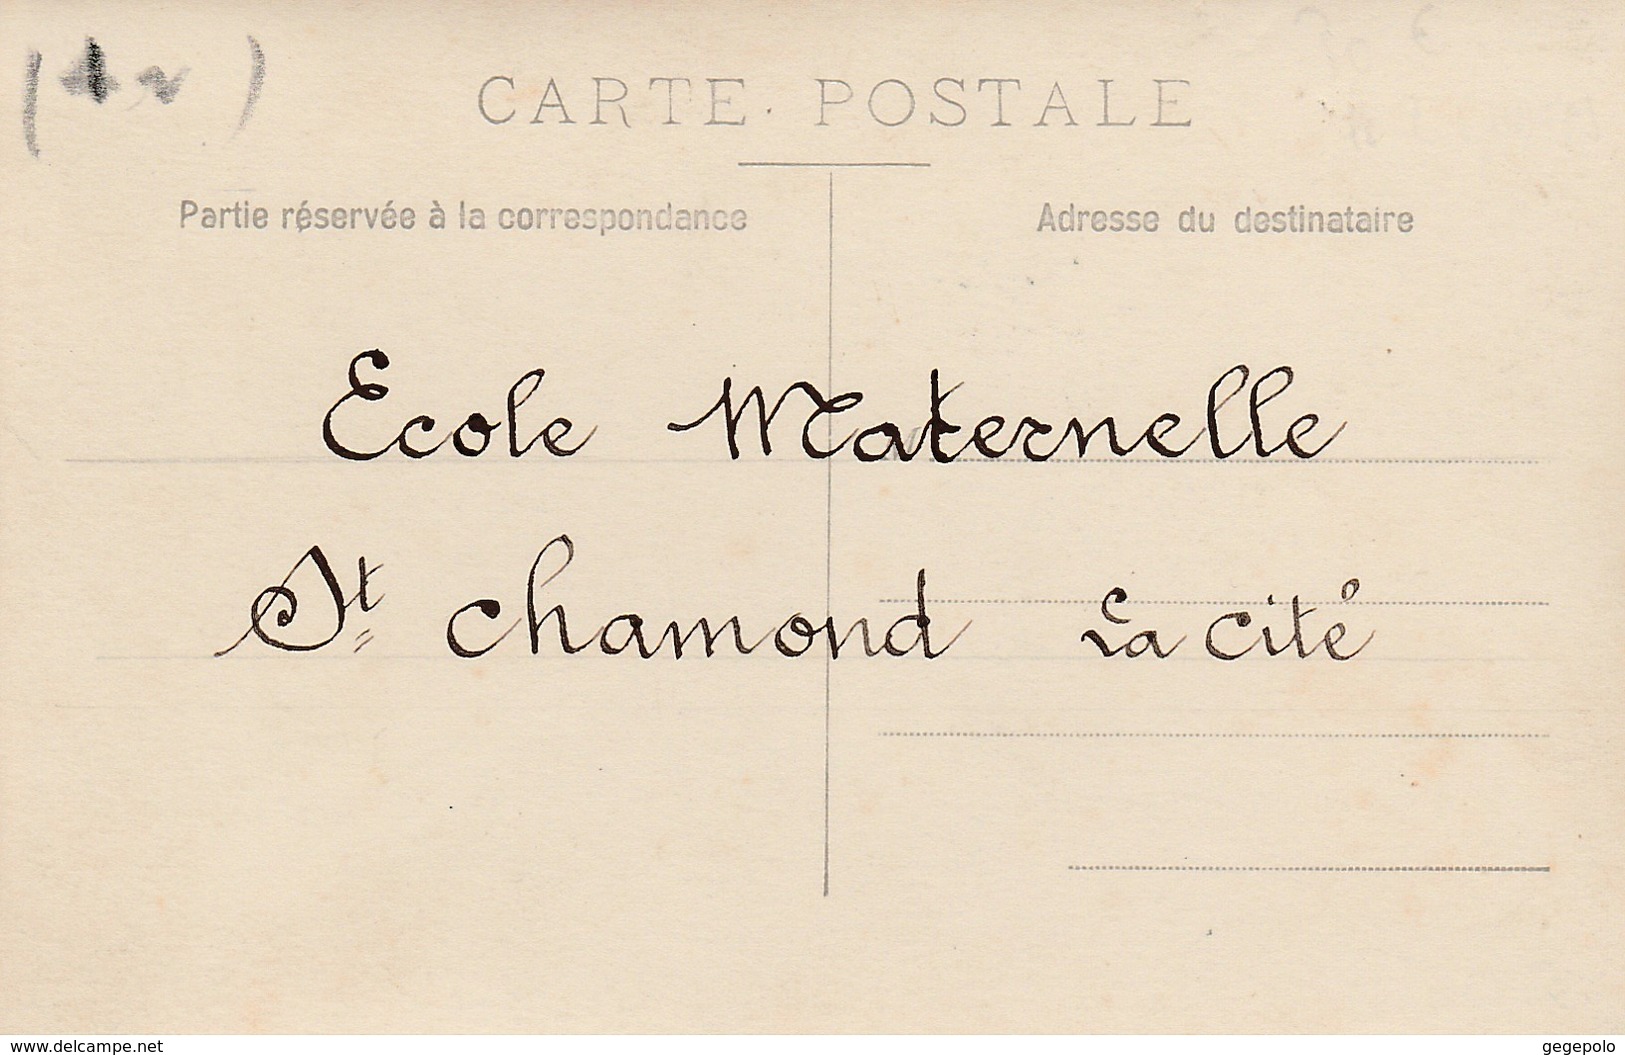 CARTE POSTALE
Partie réservée à la correspondance
Adresse du destinataire
Ecole Maternelle
St Chamond La Cité
www.delcampe.net
gegepolo